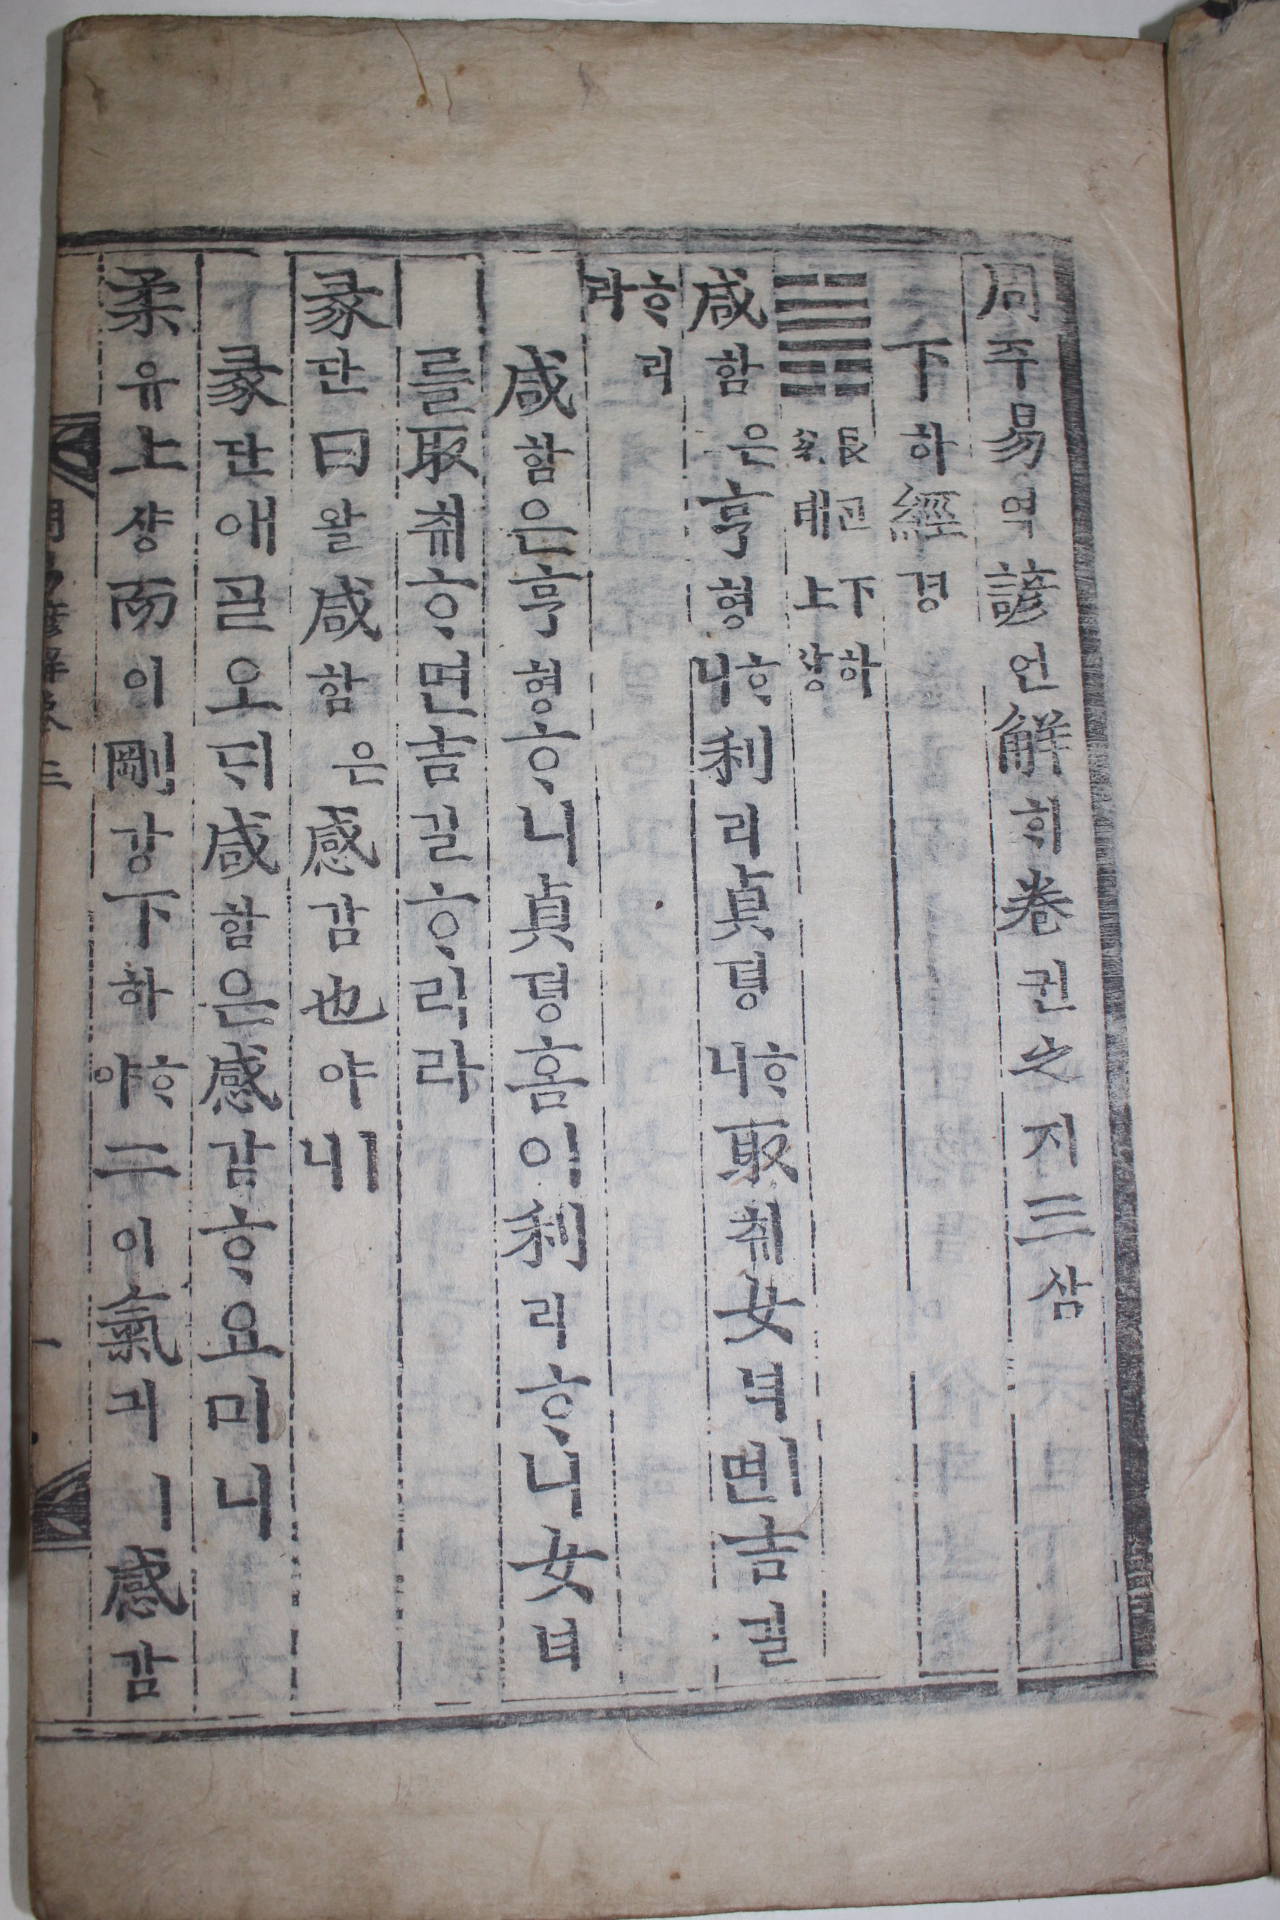 周쥬易역諺언解ᄒᆡ卷권之지三삼
下하經경
䷞ 艮간下하兌태上샹
咸함은亨형ᄒᆞ니利리貞뎡ᄒᆞ니取ᄎᆔ女녀ㅣ면吉길
ᄒᆞ리라
咸함은亨형ᄒᆞ니貞뎡홈이利리ᄒᆞ니女녀
를取ᄎᆔᄒᆞ면吉길ᄒᆞ리라
彖단曰왈咸함은感감也야ㅣ니
彖단애ᄀᆞᆯ오ᄃᆡ咸함은感감ᄒᆞ요미니
柔유上샹而이剛강下하ᄒᆞ야二이氣긔ㅣ感감
周易諺解卷三 一